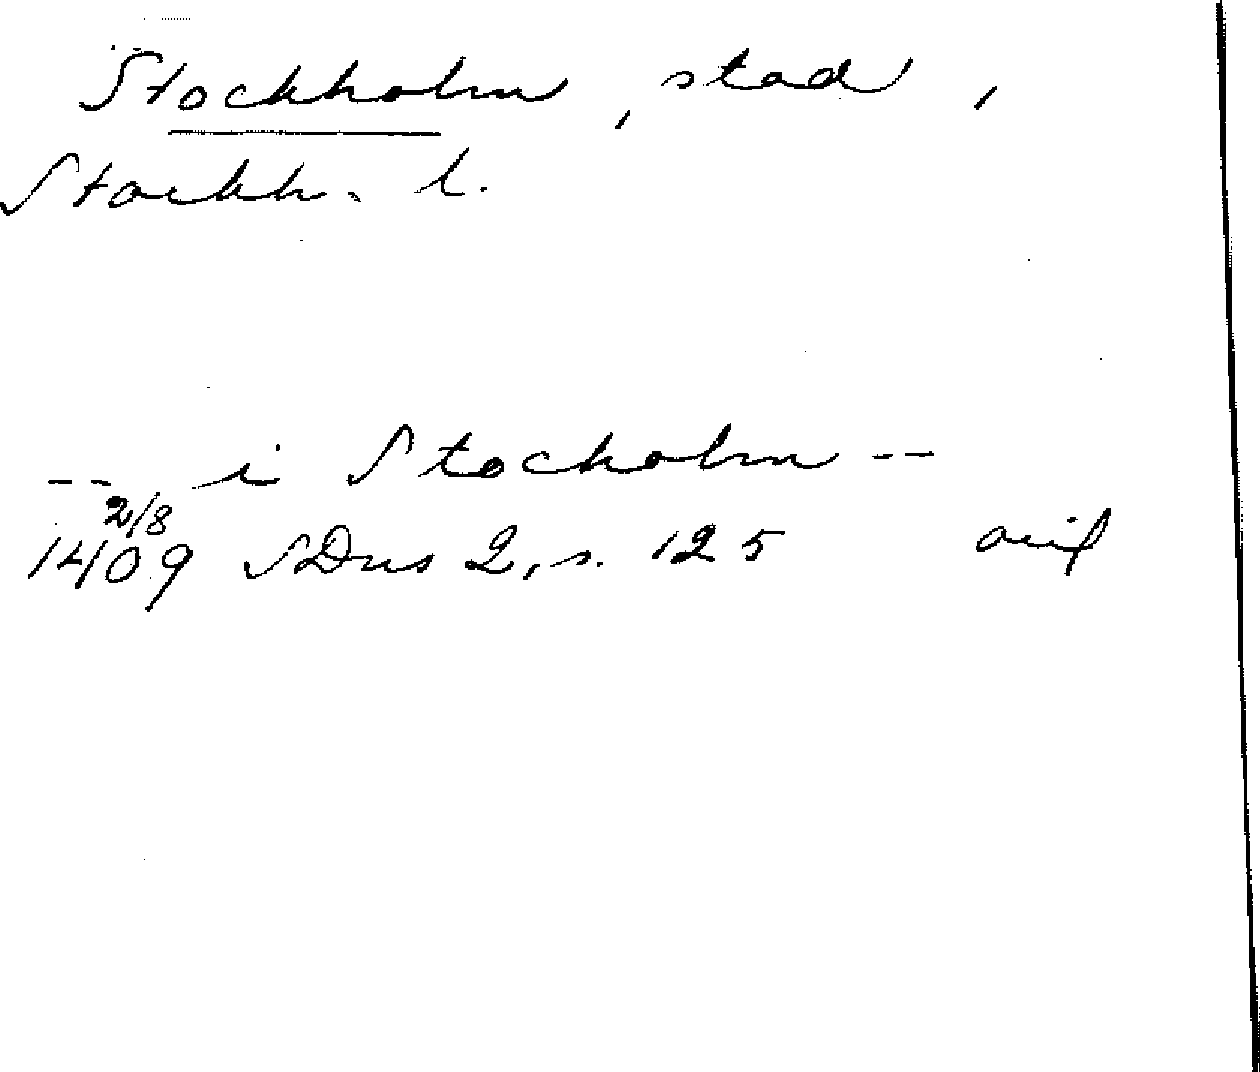 Stockholm, stad,
Stockh. l.
-- i Stocholm --
2/8
1409 SDns 2, s. 125